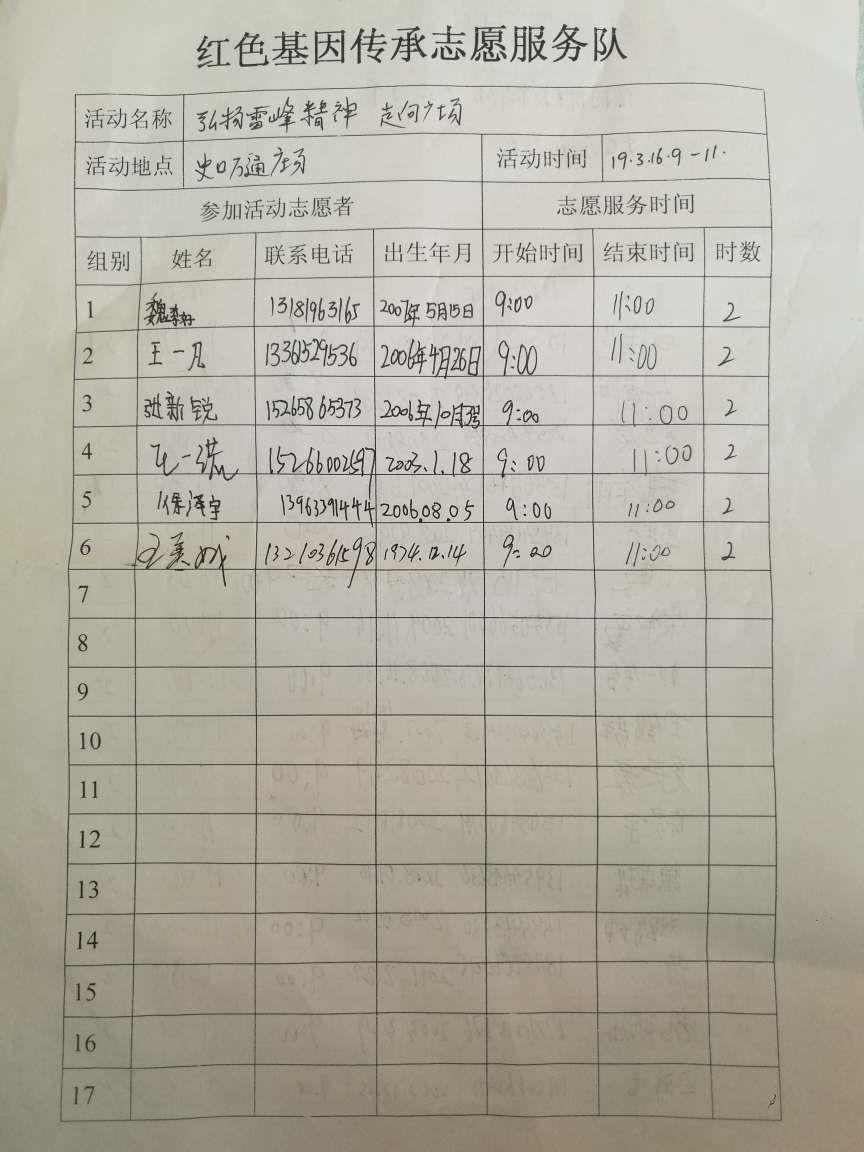 红色基因传承志愿服务队
活动名称 弘扬雪峰精神 走向广场
活动地点 史口万通广场 活动时间 19.3.16.9-11.
参加活动志愿者 志愿服务时间
组别 姓名 联系电话 出生年月 开始时间 结束时间 时数
1 13181963165 2007年5月15日 9:00 11:00 2
2 王一凡 13361529536 2006年4月26日 9:00 11:00 2
3 张新锐 15265865373 2006年10月 9:00 11:00 2
4 15266002597 2003.1.18 9:00 11:00 2
5 泽宇 13963391444 2006.08.05 9:00 11:00 2
6 王美 13210361598 1974.12.14 9:00 11:00 2
7
8
9
10
11
12
13
14
15
16
17